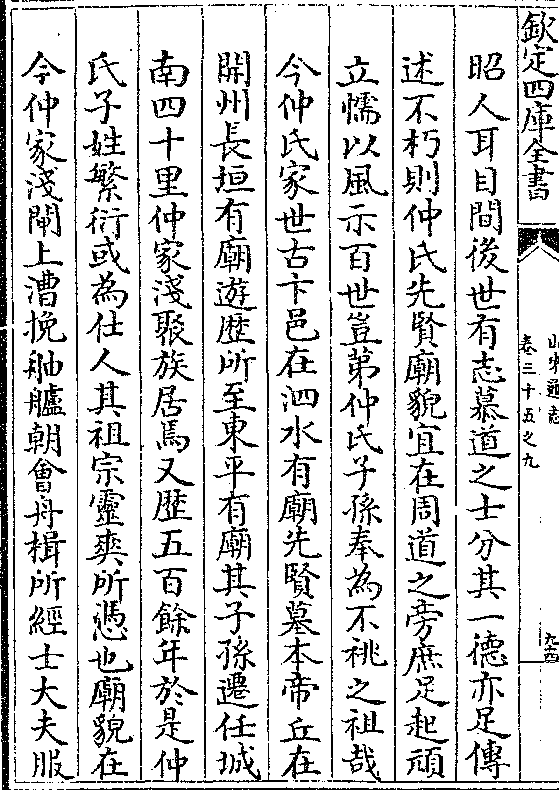 欽定四庫全書
山東通志
卷三十五之九
九西
昭人耳目間後世有志慕道之士分其一德亦足傳
述不朽則仲氏先賢廟貌宜在周道之旁庶足起頑
立懦以風示百世豈第仲氏子孫奉為不祧之祖哉
今仲氏家世古卞邑在泗水有廟先賢墓本帝丘在
開州長垣有廟遊歴所至東平有廟其子孫遷任城
南四十里仲家淺聚族居焉又歴五百餘年於是仲
氏子姓繁衍或為仕人其祖宗靈爽所憑也廟貌在
今仲家淺閘上漕挽舳艫朝會舟楫所經士大夫服